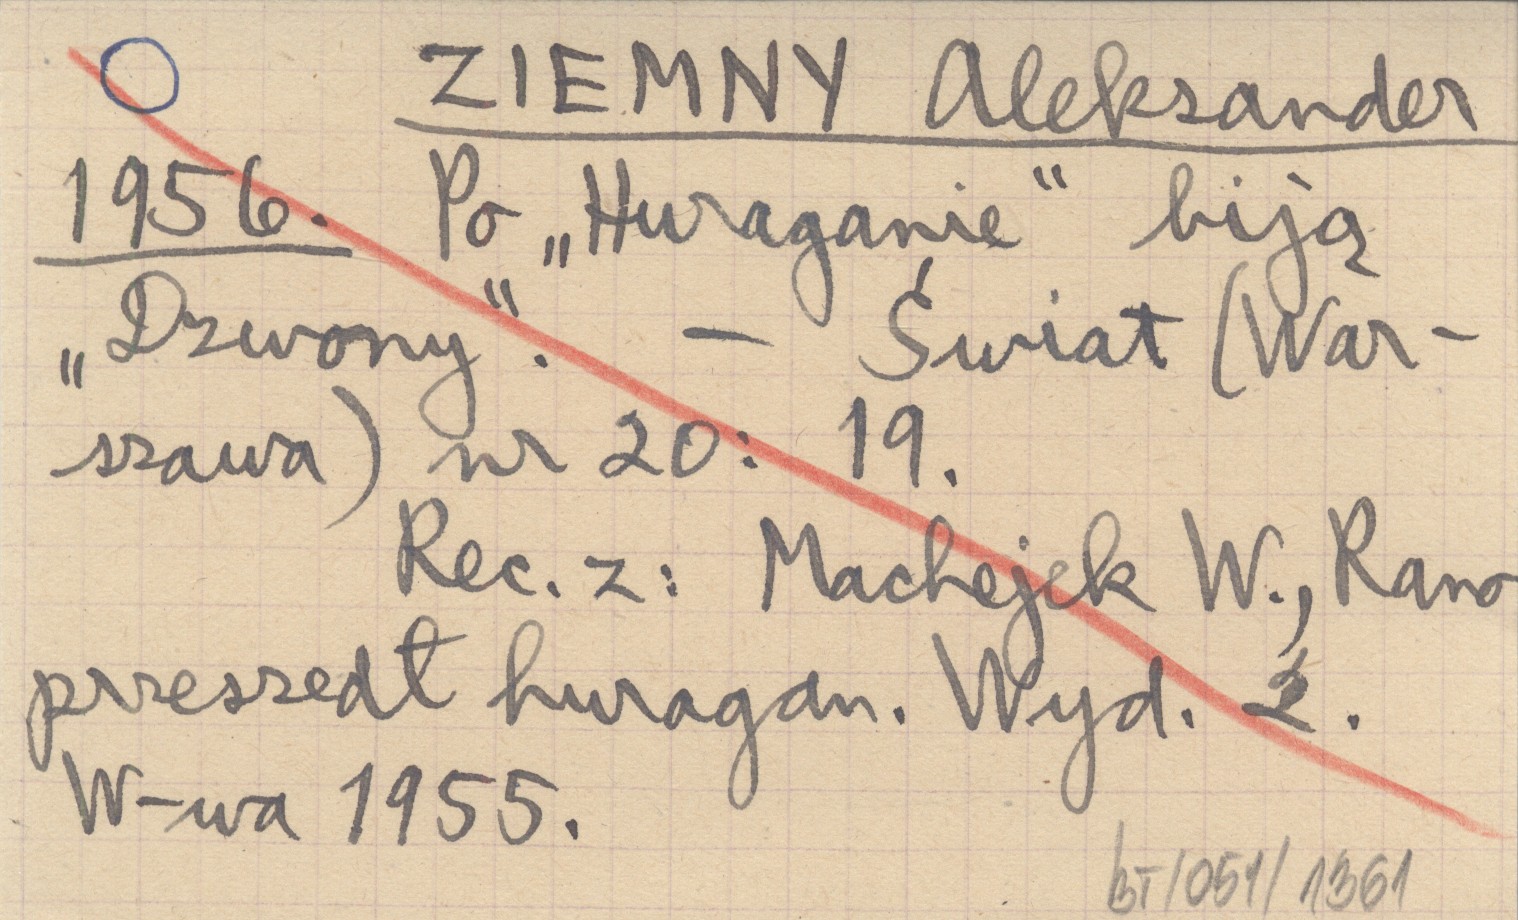 ZIEMNY Aleksander
1956. Po „Huraganie" biją
„Dzwony". — Świat (War-
szawa) nr 20: 19.
Rec. z: Machejek W., Rano
przeszedł huragan. Wyd. 2.
W-wa 1955.
BT/051/1361